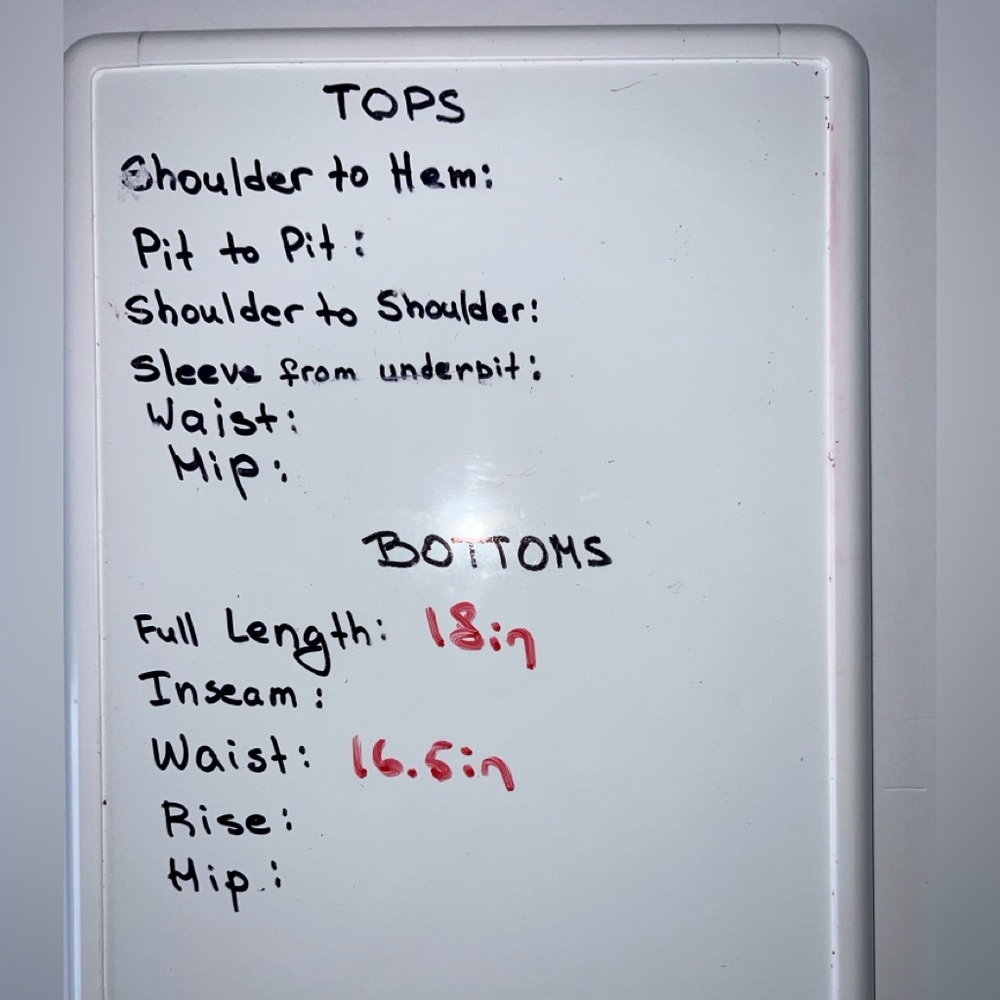 TOPS
Shoulder to Hem:
Pit to Pit:
Shoulder to Shoulder:
Sleeve from underpit:
Waist:
Hip:
BOTTOMS
Full Length: 18in
Inseam:
Waist: 16.5in
Rise:
Hip: